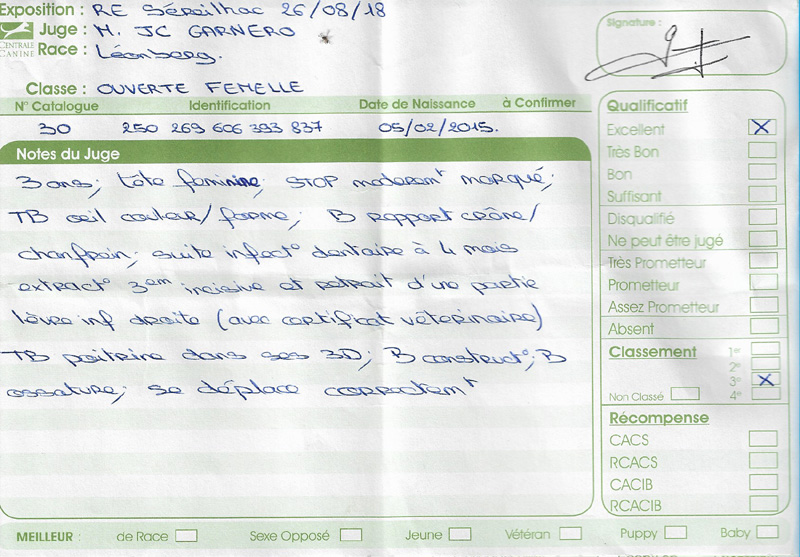 Exposition : RE Séreilhac 26/08/18
Juge : M. JC GARNERO
CENTRALE CANINE
Race : Léonberg.
Classe : OUVERTE FEMELLE
N° Catalogue Identification Date de Naissance à Confirmer
30 250 269 606 393 837 05/02/2015.
Notes du Juge
3 ans; tête feminine; STOP moderemt marqué;
TB oeil couleur/forme; B rapport crâne/
chanfrein; suite infect° dentaire à 4 mois
extract° 3em incisive et retrait d'une partie
lèvre inf droite (avec certificat vétérinaire)
TB poitrine dans ses 3D; B construct°; B
ossature; se déplace correctemt
Signature :
Qualificatif
Excellent X
Très Bon
Bon
Suffisant
Disqualifié
Ne peut être jugé
Très Prometteur
Prometteur
Assez Prometteur
Absent
Classement 1e
2e
3e X
Non Classé 4e
Récompense
CACS
RCACS
CACIB
RCACIB
MEILLEUR : de Race Sexe Opposé Jeune Vétéran Puppy Baby